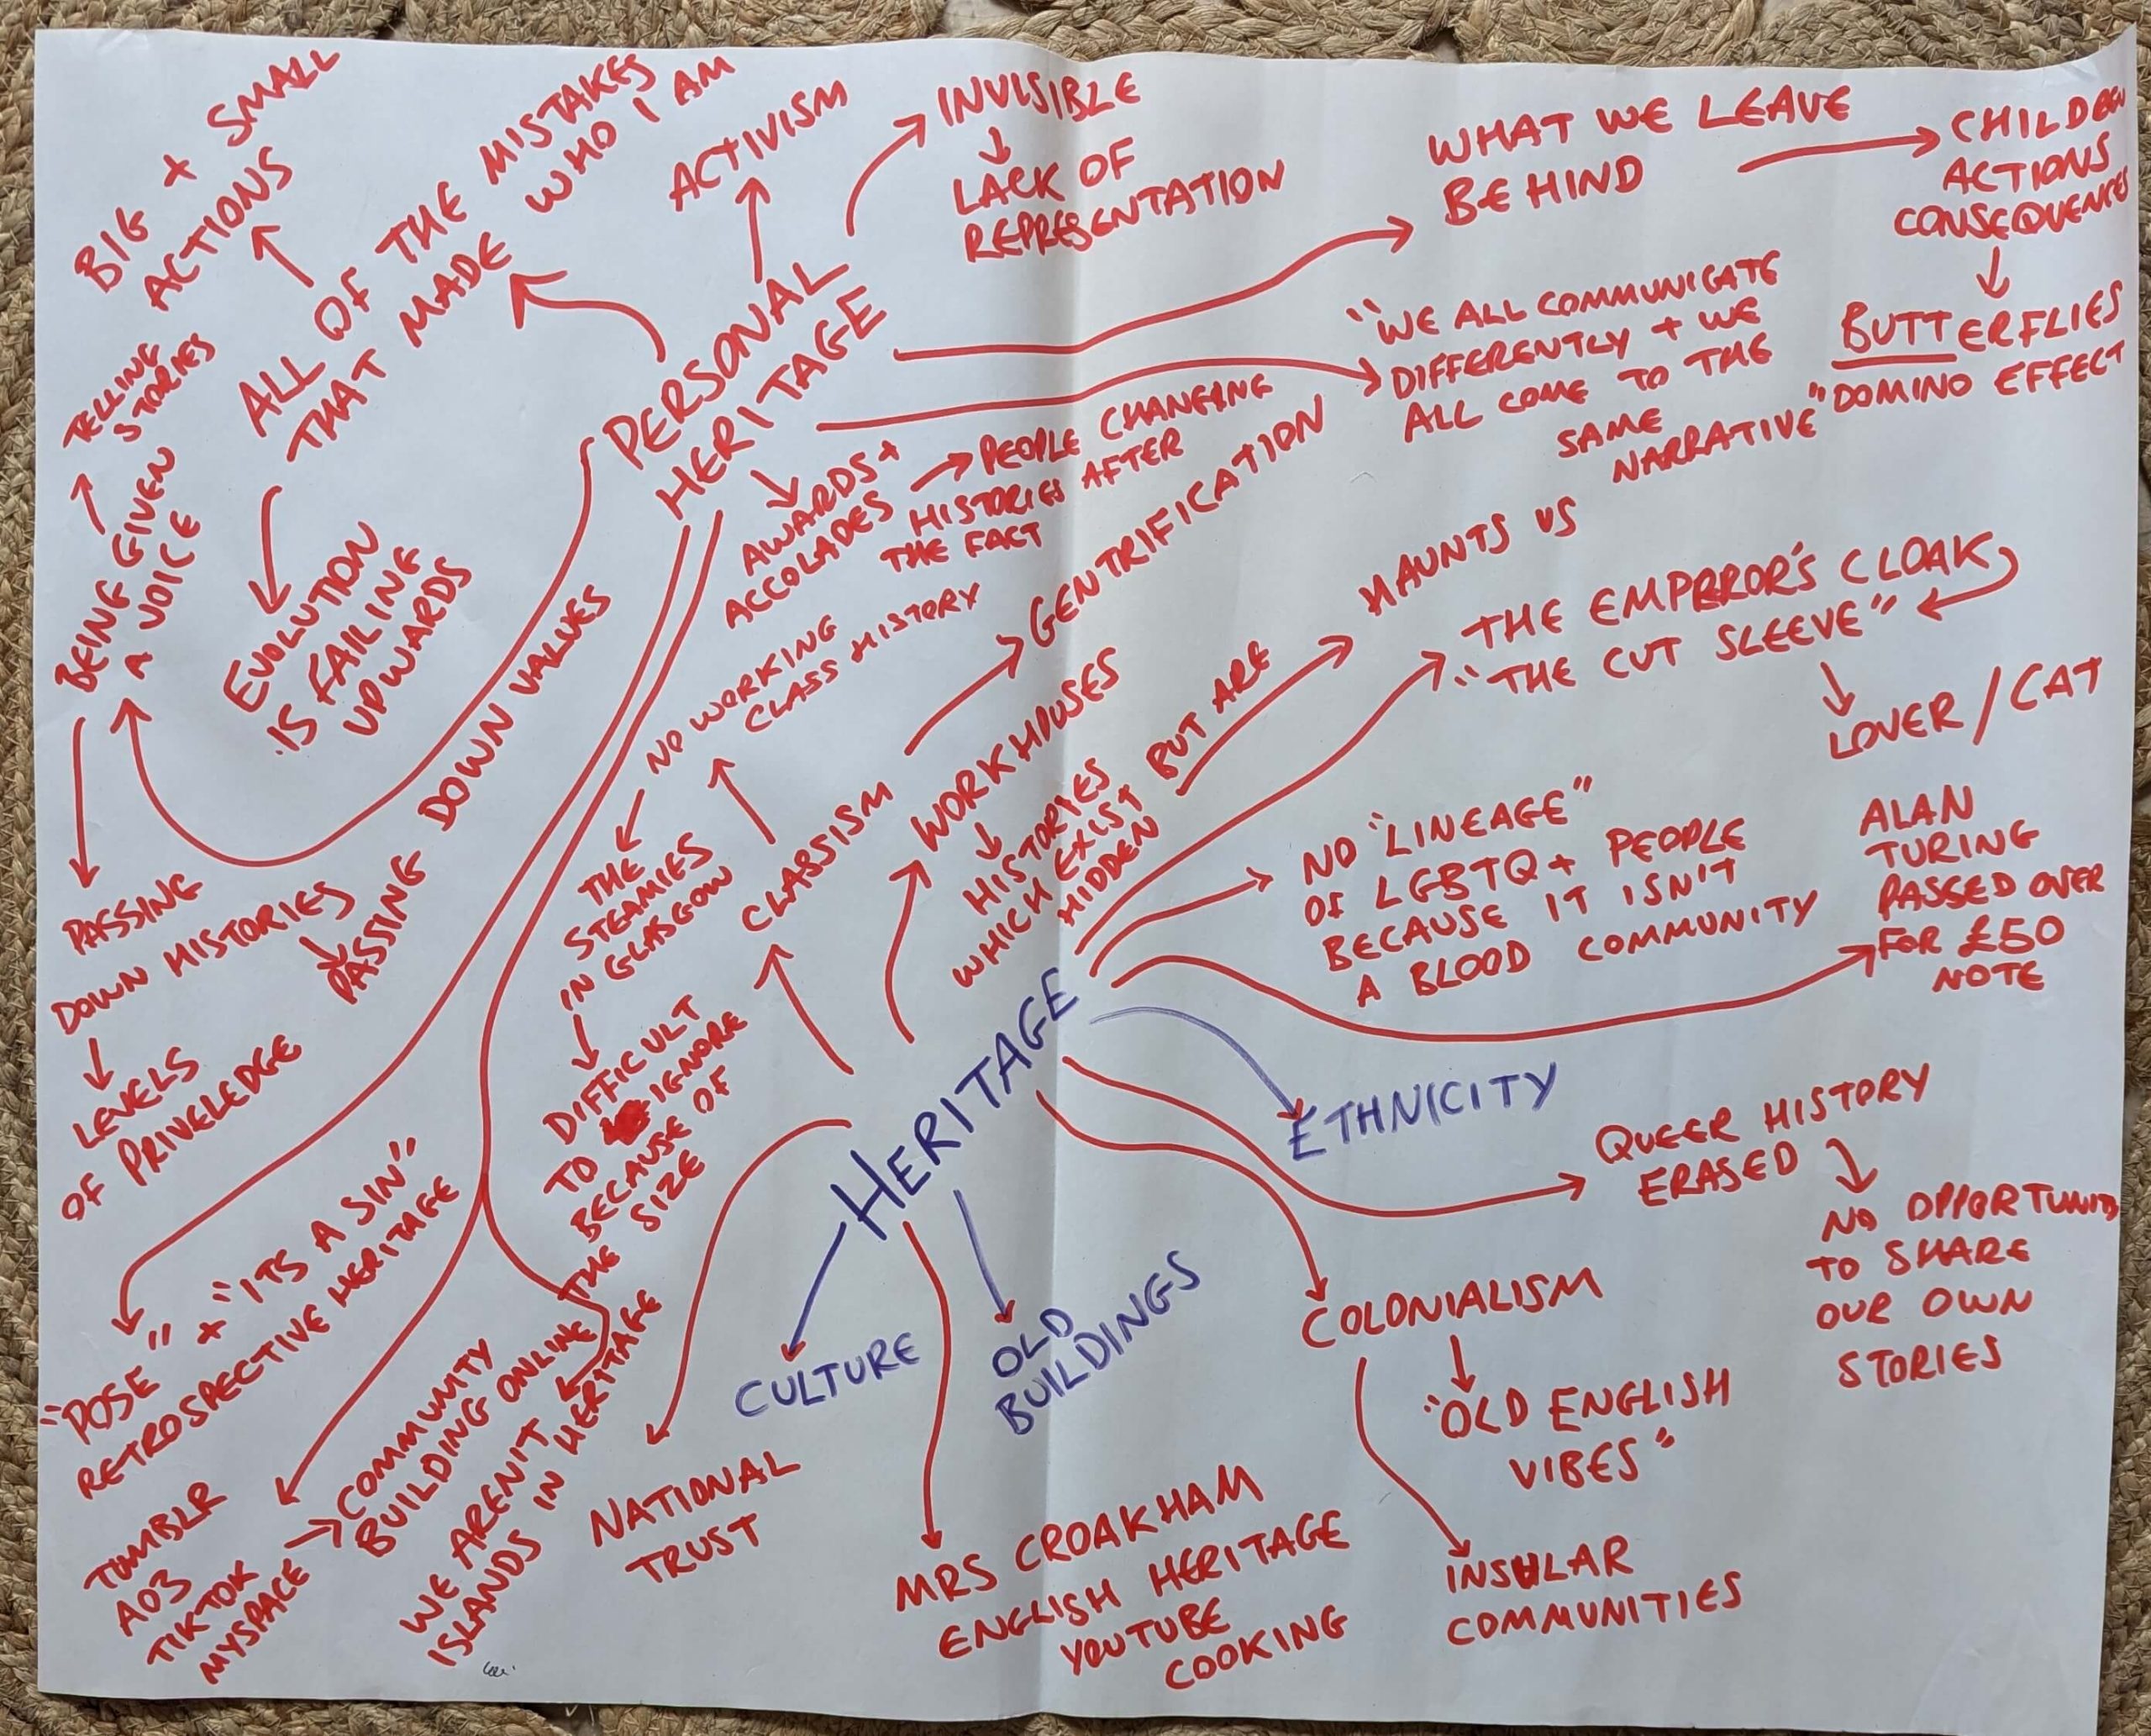 BIG + SMALL
ACTIONS
ALL OF THE MISTAKES
THAT MADE WHO I AM
EVOLUTION
IS FAILING
UPWARDS
ACTIVISM
INVISIBLE
LACK OF
REPRESENTATION
WHAT WE LEAVE
BEHIND
CHILDREN
ACTIONS
CONSEQUENCES
BUTTERFLIES
DOMINO EFFECT
"WE ALL COMMUNICATE
DIFFERENTLY + WE
ALL COME TO THE
SAME
NARRATIVE"
PERSONAL
HERITAGE
AWARDS +
ACCOLADES
PEOPLE CHANGING
HISTORIES AFTER
THE FACT
TELLING
STORIES
BEING GIVEN
A VOICE
PASSING
DOWN HISTORIES
PASSING DOWN VALUES
LEVELS
OF PRIVELEDGE
"POSE" + "ITS A SIN"
RETROSPECTIVE HERITAGE
TUMBLR
AO3
TIKTOK
MYSPACE
COMMUNITY
BUILDING ONLINE
WE ARENT
ISLANDS IN HERITAGE
HERITAGE
CLASSISM
GENTRIFICATION
NO WORKING
CLASS HISTORY
THE
STEAMIES
IN GLASGOW
DIFFICULT
TO IGNORE
BECAUSE OF
THE SIZE
WORKHOUSES
HISTORIES
WHICH EXIST
HIDDEN
BUT ARE
HAUNTS US
THE EMPEROR'S CLOAK
"THE CUT SLEEVE"
LOVER / CAT
NO "LINEAGE"
OF LGBTQ+ PEOPLE
BECAUSE IT ISN'T
A BLOOD COMMUNITY
ALAN
TURING
PASSED OVER
FOR £50
NOTE
ETHNICITY
QUEER HISTORY
ERASED
NO OPPORTUNITY
TO SHARE
OUR OWN
STORIES
COLONIALISM
"OLD ENGLISH
VIBES"
INSULAR
COMMUNITIES
OLD
BUILDINGS
CULTURE
MRS CROAKHAM
ENGLISH HERITAGE
YOUTUBE
COOKING
NATIONAL
TRUST